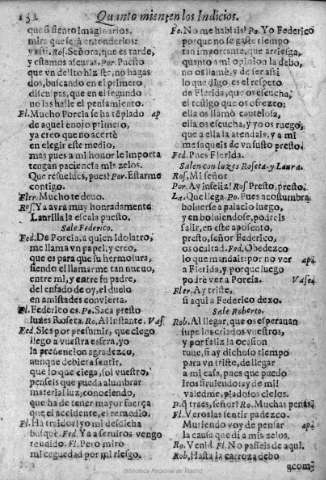 152 Quanto mienten los Indicios.
que si siento Imaginarios,
mira que se à entenderlos:
y assi. Ros. Señora, que es tarde,
y estamos à escuras. Por. Puesto
que yà delito hiziste, no hagas
dos, buscando en el primero
disculpas, que en el segundo
no las halle el pensamiento.
Fl. Mucho Porcia se ha templado ap
de aquel enojo primero,
ya creo que no acertè
en elegir este medio,
mas pues a mi honor le importa
tengan paciencia mis zelos.
Que resuelues, pues? Por. Estarme
contigo.
Flor. Mucho te deuo.
Ros. Ya avra muy honradamente
Laurilla la escala puesto.
Sale Federico.
Fed. De Porcia, a quien Idolatro,
me llama vn papel, y creo,
que es para que su hermosura,
siendo el llamarme tan nueuo,
entre mi, y entre su padre,
del enfado de oy, el duelo
en amistades convierta.
Fl. Federico es. Po. Saca presto
luzes Roseta. Ro. Al instante. Vas.
Fed. Si es por presumir, que ciego
llego a vuestra esfera, yo
la preuencion agradezco,
aunque debiera sentir,
que lo que ciega, sol vuestro,
penseis que pueda alumbrar
material luz, conociendo,
que ha de tener mayor fuerça
que el accidente, el remedio.
Fl. Ha traidor! yo mi desdicha
busquè. Fed. Ya a seruiros vengo
rendido. Fl. Pero miro
mi ceguedad por mi riesgo.
Fe. No me hablais? Po. Yo Federico
porque no se gaste tiempo
tan importante, que arriesga,
quanto a mi opinion la debo,
no os llamè, y de ser assi
lo que digo, es el respeto
de Florida, que os escucha,
el testigo que os ofrezco:
ella os llamò cautelosa,
ella os escucha, y yo os ruego,
que a ella la atendais, y a mi
me saqueis de vn susto presto.
Fed. Pues Florida.
Salen con luzes Roseta, y Laura.
Ros. Mi señor
Por. Ay infeliz! Ros. Presto, presto.
La. Que llega. Po. Pues acostumbra
boluerse a palacio luego,
y en boluiendose, podreis
salir, en este aposento,
presto, señor Federico,
os ocultad. Fed. Obedezco
lo que mandais: por no ver apa.
a Florida, y porque luego
podrè ver a Porcia. Vase.
Flor. Ay triste,
si aqui a Federico dexo.
Sale Roberto.
Rob. Al llegar, que os esperauan
supe los criados vuestros,
y por saliz la ocasion
tuue, si ay dichoso tiempo
para vn triste, de llegar
a mi casa, pues que puedo
iros siruiendo: ay de mi!
valedme, piadosos cielos.
Po. A tres, señor! Ro. Muchas penas.
Fl. Veros las sentir padezco.
Muriendo voy de pensar apa
la causa que dì a mis zelos.
Ro. Venid. Fl. No passeis de aqui.
Rob. Hasta la carroza debo
acom-
Biblioteca Nacional de Madrid